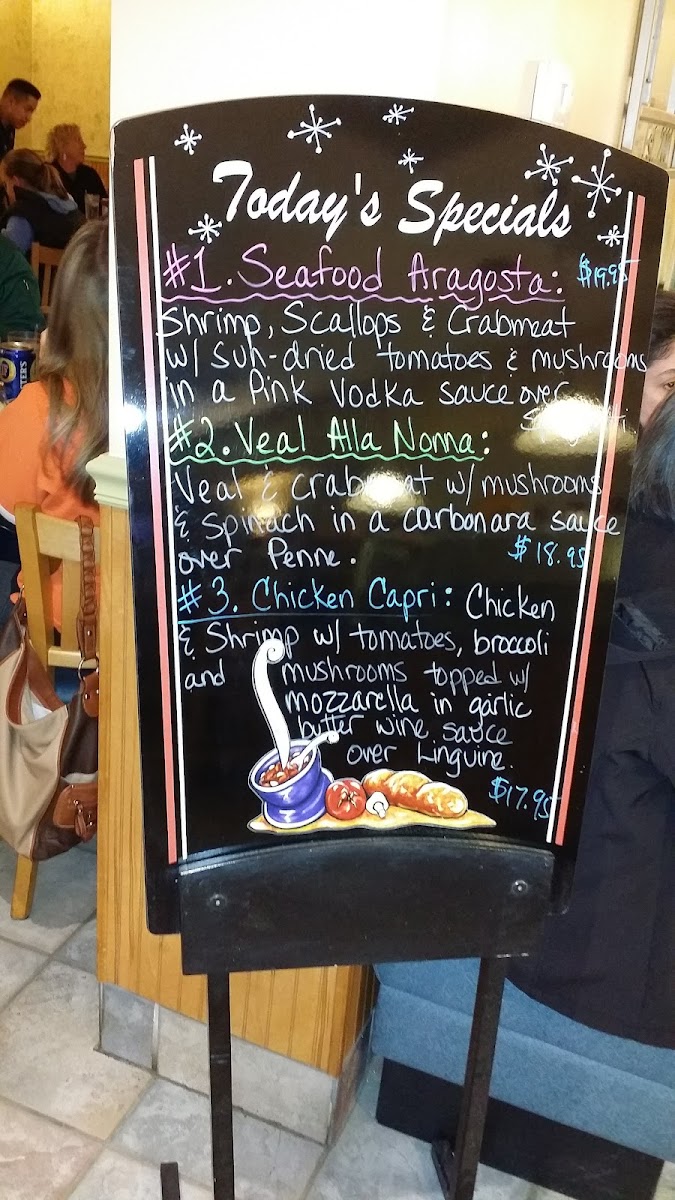 Today's Specials
#1. Seafood Aragosta: $19.95
Shrimp, Scallops & Crabmeat
w/ Sun-dried tomatoes & mushrooms
in a Pink Vodka sauce over
Spaghetti
#2. Veal Alla Nonna:
Veal & crabmeat w/ mushrooms
& Spinach in a carbonara sauce
over Penne. $18.95
#3. Chicken Capri: Chicken
& Shrimp w/ tomatoes, broccoli
and mushrooms topped w/
mozzarella in garlic
butter wine sauce
over Linguine.
$17.95